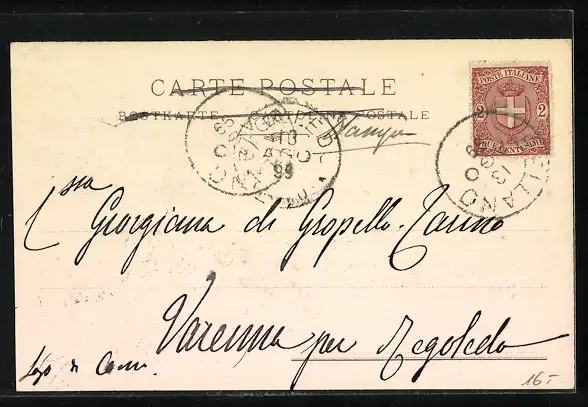 CARTE POSTALE
POSTKARTE
POSTALE
Stampe
POSTE ITALIANE
2 2
DUE CENTESIMI
MILANO
13
99
MILANO
13
C.ssa Georgiana di Gropello-Tarino
Varenna per Regoledo
Lago di Como
16-